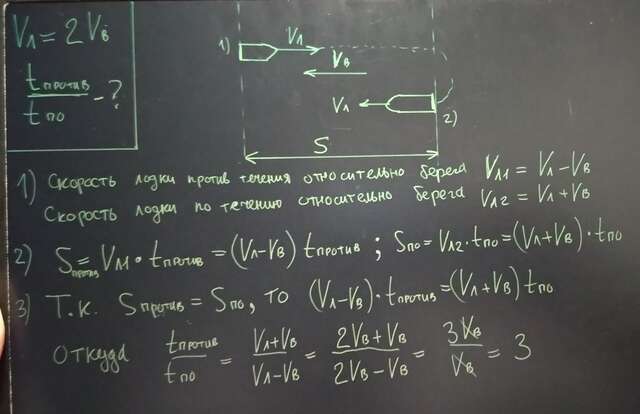 Vл = 2Vв
tпротив/tпо - ?
1) Vл
Vв
Vл 2)
S
1) Скорость лодки против течения относительно берега Vл1 = Vл - Vв
Скорость лодки по течению относительно берега Vл2 = Vл + Vв
2) Sпротив = Vл1 · tпротив = (Vл-Vв) tпротив ; Sпо = Vл2 · tпо = (Vл+Vв) · tпо
3) Т.к. Sпротив = Sпо, то (Vл-Vв) · tпротив = (Vл+Vв) tпо
Откуда tпротив/tпо = Vл+Vв/Vл-Vв = 2Vв+Vв/2Vв-Vв = 3Vв/Vв = 3